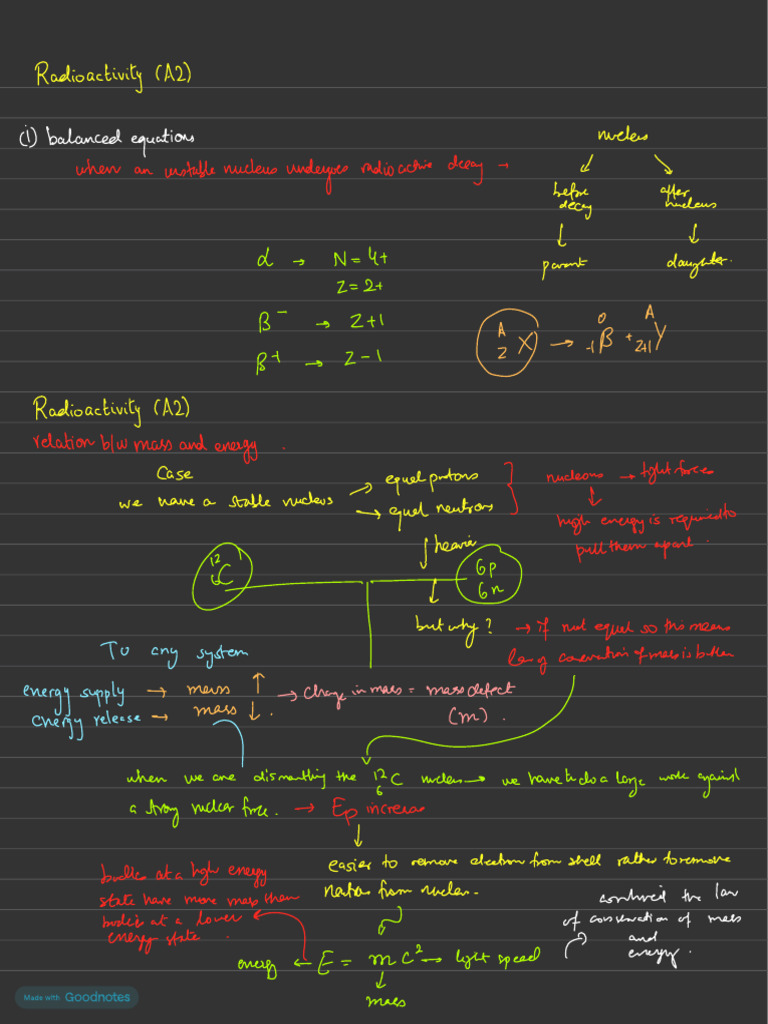 Radioactivity (A2)
(i) balanced equations
when an unstable nucleus undergoes radioactive decay →
nucleus
before decay
after nucleus
parent
daughter.
α → N = 4+
Z = 2+
β⁻ → Z+1
β+ → Z-1
A Z X → 0 -1 β + A Z+1 Y
Radioactivity (A2)
relation b/w mass and energy .
Case
we have a stable nucleus
→ equal protons
→ equal neutrons
nucleons → tight forces
high energy is required to
pull them apart .
heavier
12 6 C
6p
6n
but why? → if not equal so this means
law of conservation of mass is broken
To any system
energy supply → mass ↑
energy release → mass ↓ .
→ Change in mass = mass defect
(m) .
when we are dismantling the 12 6 C nucleus → we have to do a large work against
a strong nuclear force. → Ep increase
easier to remove electron from shell rather to remove
from nucleus.
bodies at a high energy
state have more mass than
bodies at a lower
energy state .
energy ← E = mc² → light speed
mass
the law
of conservation of mass
and
energy .
Made with Goodnotes